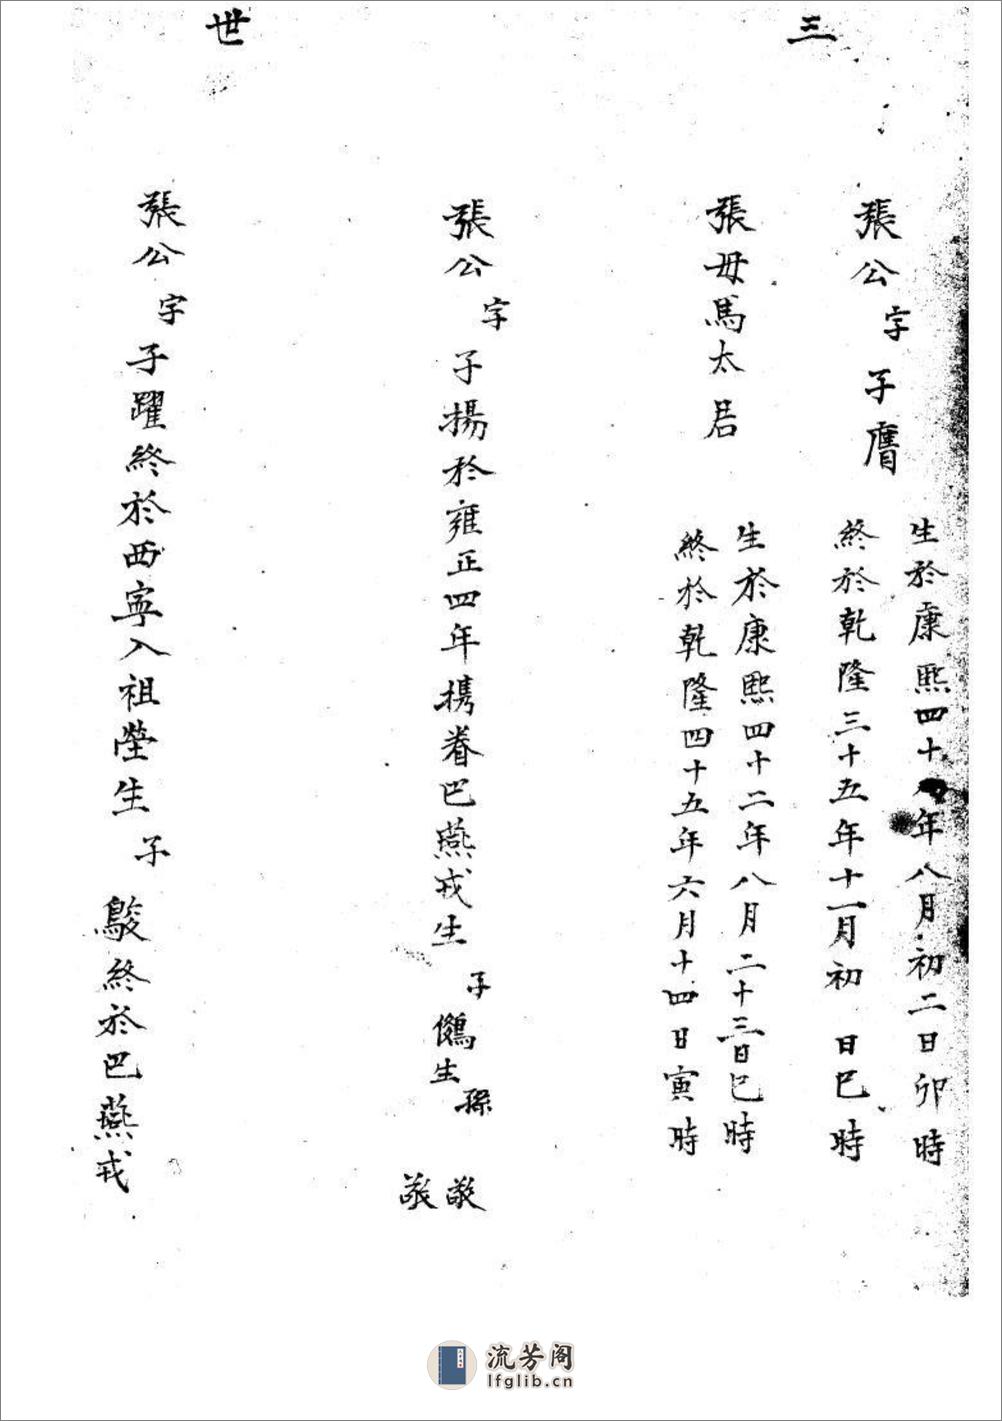 三世
張公字子膺
生於康熙四十年八月初二日卯時
終於乾隆三十五年十一月初 日巳時
張母馬太君
生於康熙四十二年八月二十三日巳時
終於乾隆四十五年六月十四日寅時
張公字子揚於雍正四年携眷巴燕戎生子鵔生孫
敬敬
張公字子躍終於西寧入祖塋生子
終於巴燕戎
流芳阁
lfglib.cn